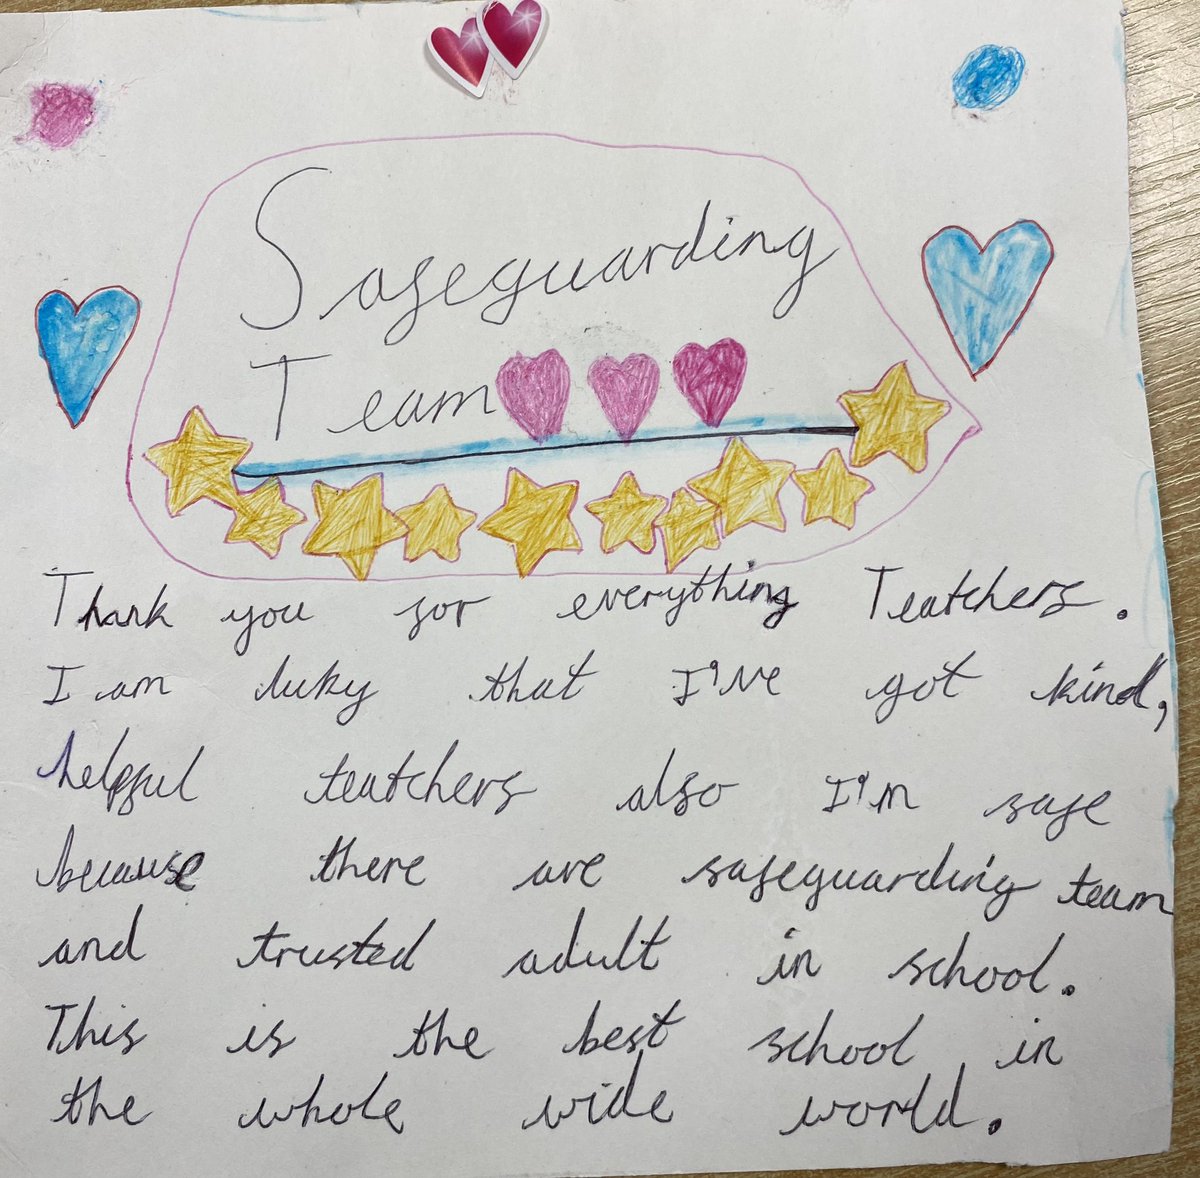 Safeguarding
Team
Thank you for everything Teatchers.
I am luky that I've got kind,
helpful teatchers also I'm safe
because there are safeguarding team
and trusted adult in school.
This is the best school in
the whole wide world.